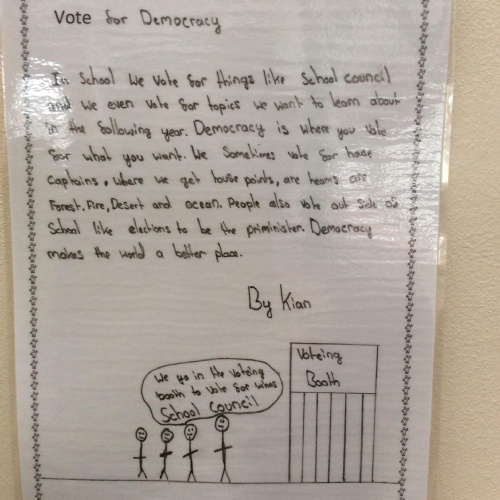 Vote for Democracy
In School we vote for things like School council
and we even vote for topics we want to learn about
in the following year. Democracy is where you vote
for what you want. We Sometimes vote for house
captains, where we get house points, are teams are
Forest, Fire, Desert and ocean. People also vote out side of
School like elections to be the priminister. Democracy
makes the world a better place.
By Kian
Voteing
Booth
We go in the voteing
booth to vote for whos
School council